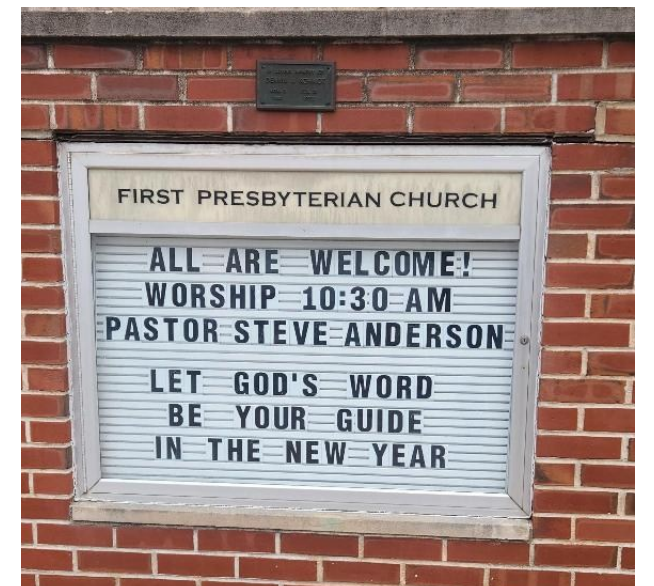 FIRST PRESBYTERIAN CHURCH
ALL ARE WELCOME!
WORSHIP 10:30 AM
PASTOR STEVE ANDERSON
LET GOD'S WORD
BE YOUR GUIDE
IN THE NEW YEAR